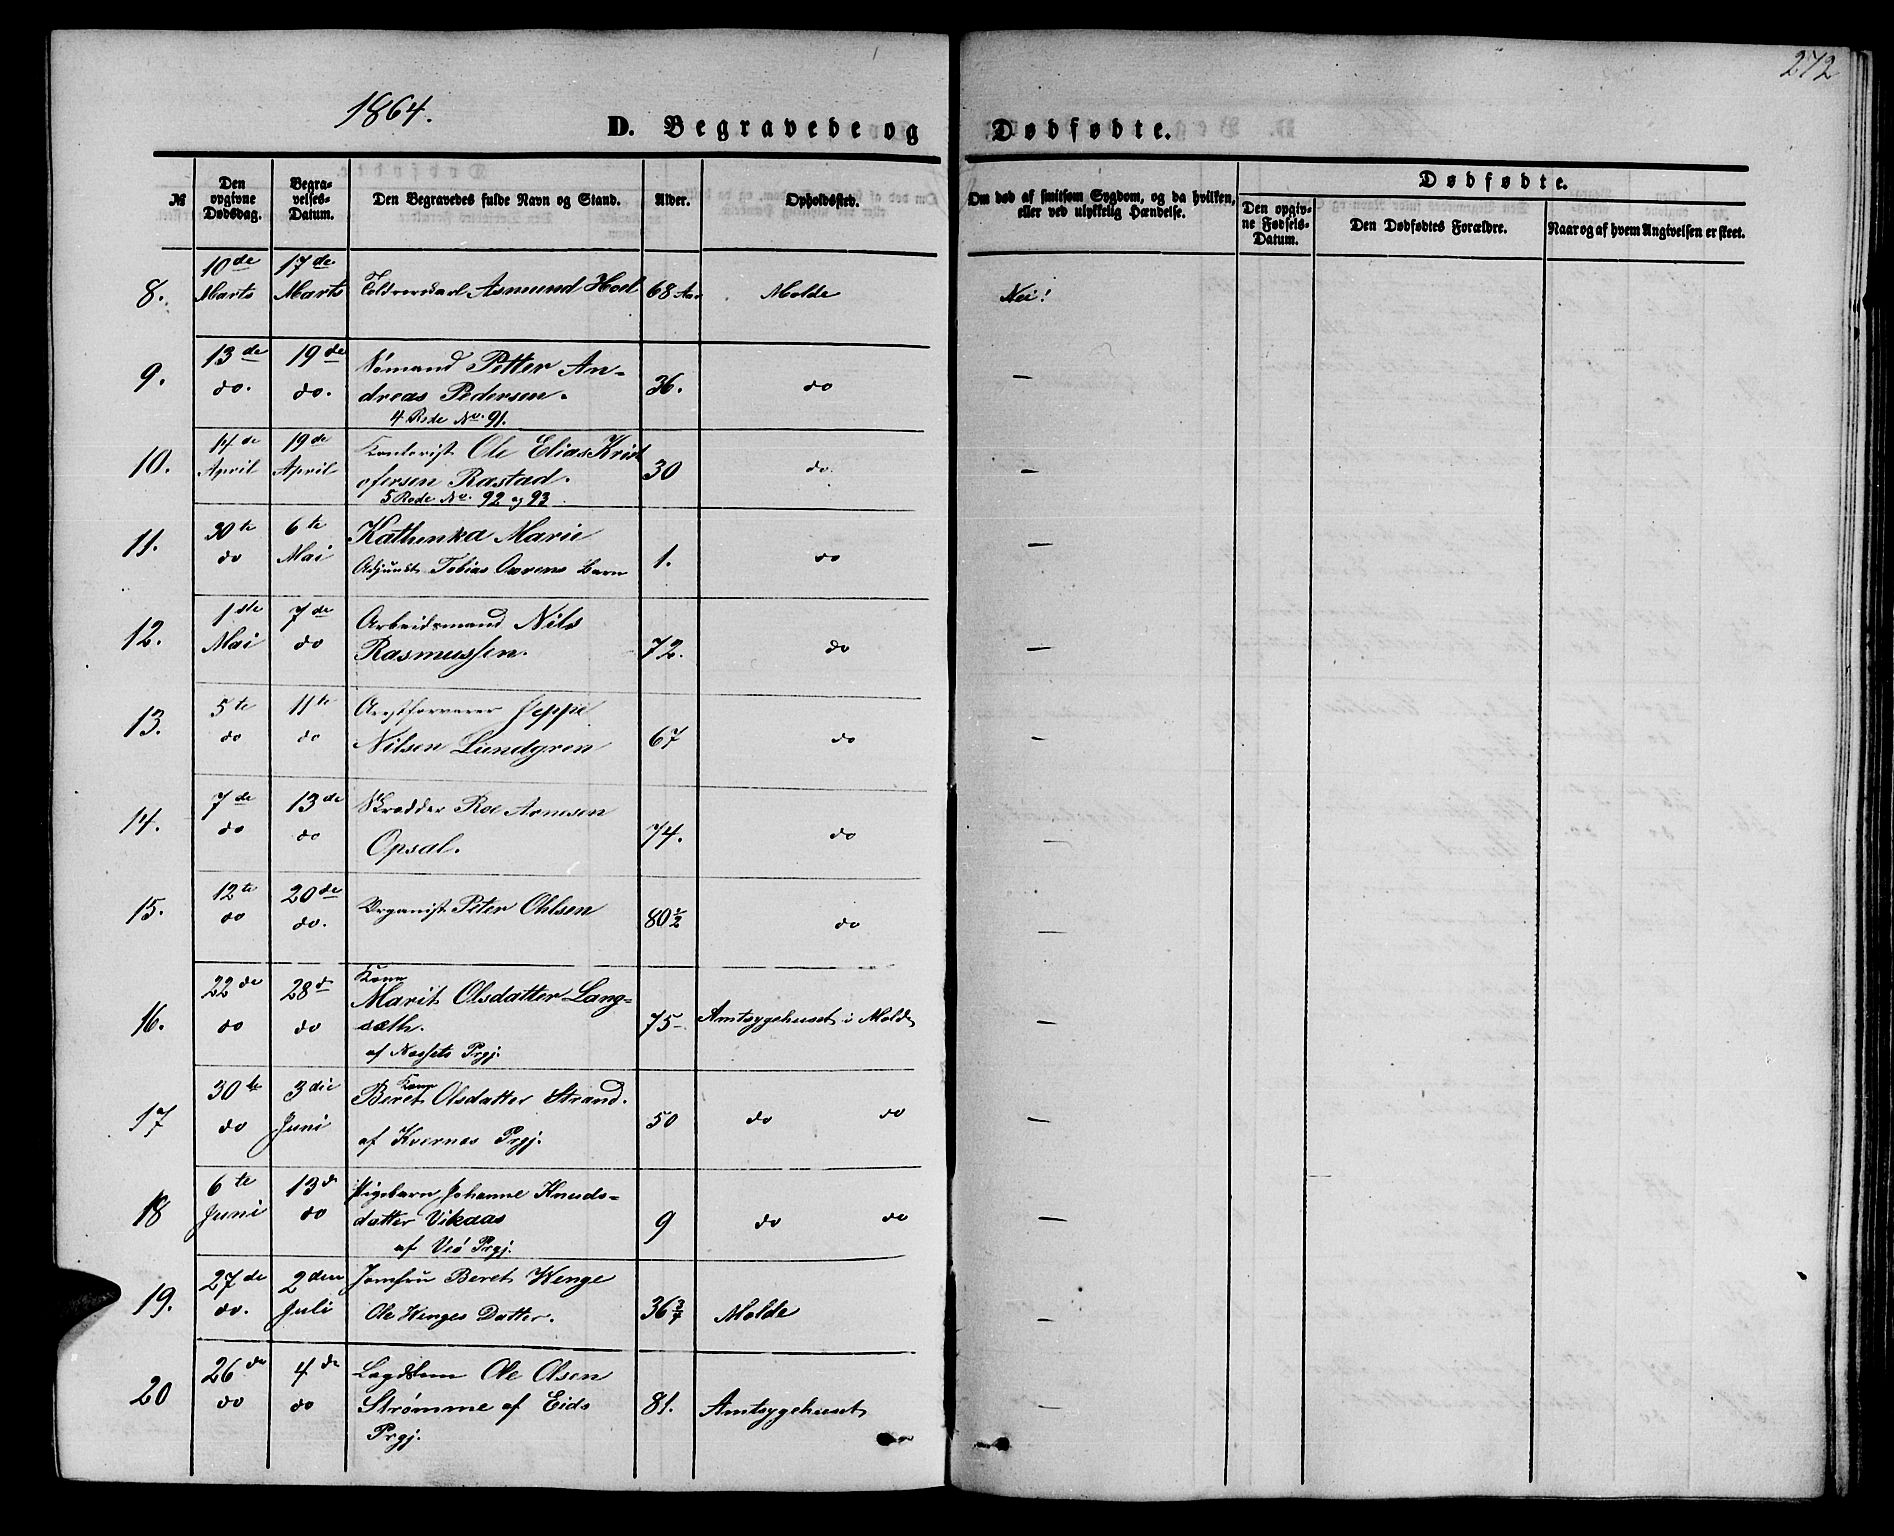 1864.
272
D. Begravede og Dødfødte.
№ | Den opgivne Dødsdag. | Begravelses-Datum. | Den Begravedes fulde Navn og Stand. | Alder. | Opholdssted. | Om død af smitsom Sygdom, og da hvilken, eller ved ulykkelig Hændelse. | Dødfødte. | Den opgivne Fødsels-Datum. | Den Dødfødtes Forældre. | Naar og af hvem Angivelsen er skeet.
8. | 10de Marts | 17de Marts | Asmund Hoel | 68 Aar | Molde | Nei!
9. | 13de do. | 19de do. | Sømand Petter Andreas Pedersen. | 36. | do | —
4 Rode No. 91.
10. | 14de April | 19de April | Kontorist Ole Elias Kristofersen Røstad. | 30 | do. | —
5 Rode No. 92 og 93
11. | 30te do | 6te Mai | Kathenka Marie | 1. | do | —
Adjunkt Tobias Owrens Barn
12. | 1ste Mai | 7de do | Arbeidsmand Nils Rasmussen. | 72. | do | —
13. | 5te do | 11te do | Arestforvarer Jeppe Nilsen Lundgren | 67 | do | —
14. | 7de do | 13de do | Skrædder Roe Arnesen Opsal. | 74. | do | —
15. | 12te do | 20de do. | Organist Peter Ohlsen | 80½ | do | —
16. | 22de do | 28d do | Kone Marit Olsdatter Langsæth. | 75- | Amtsygehuset i Molde | —
af Næssets Prgj.
17 | 30te do | 3die Juni | Kone Beret Olsdatter Strand. | 50 | do do | —
af Kvernæs Prgj.
18 | 6te Juni | 13d do | Pigebarn Johanne Knudsdatter Vikaas | 9 | do do | —
af Veø Prgj.
19. | 27de do. | 2den Juli | Jomfru Beret Wenge | 36¾ | Molde | —
Ole Wenges Datter.
20 | 26de do | 4de do | Lægdslem Ole Olsen Strømme af Eids Prgj. | 81. | Amtsygehuset | —